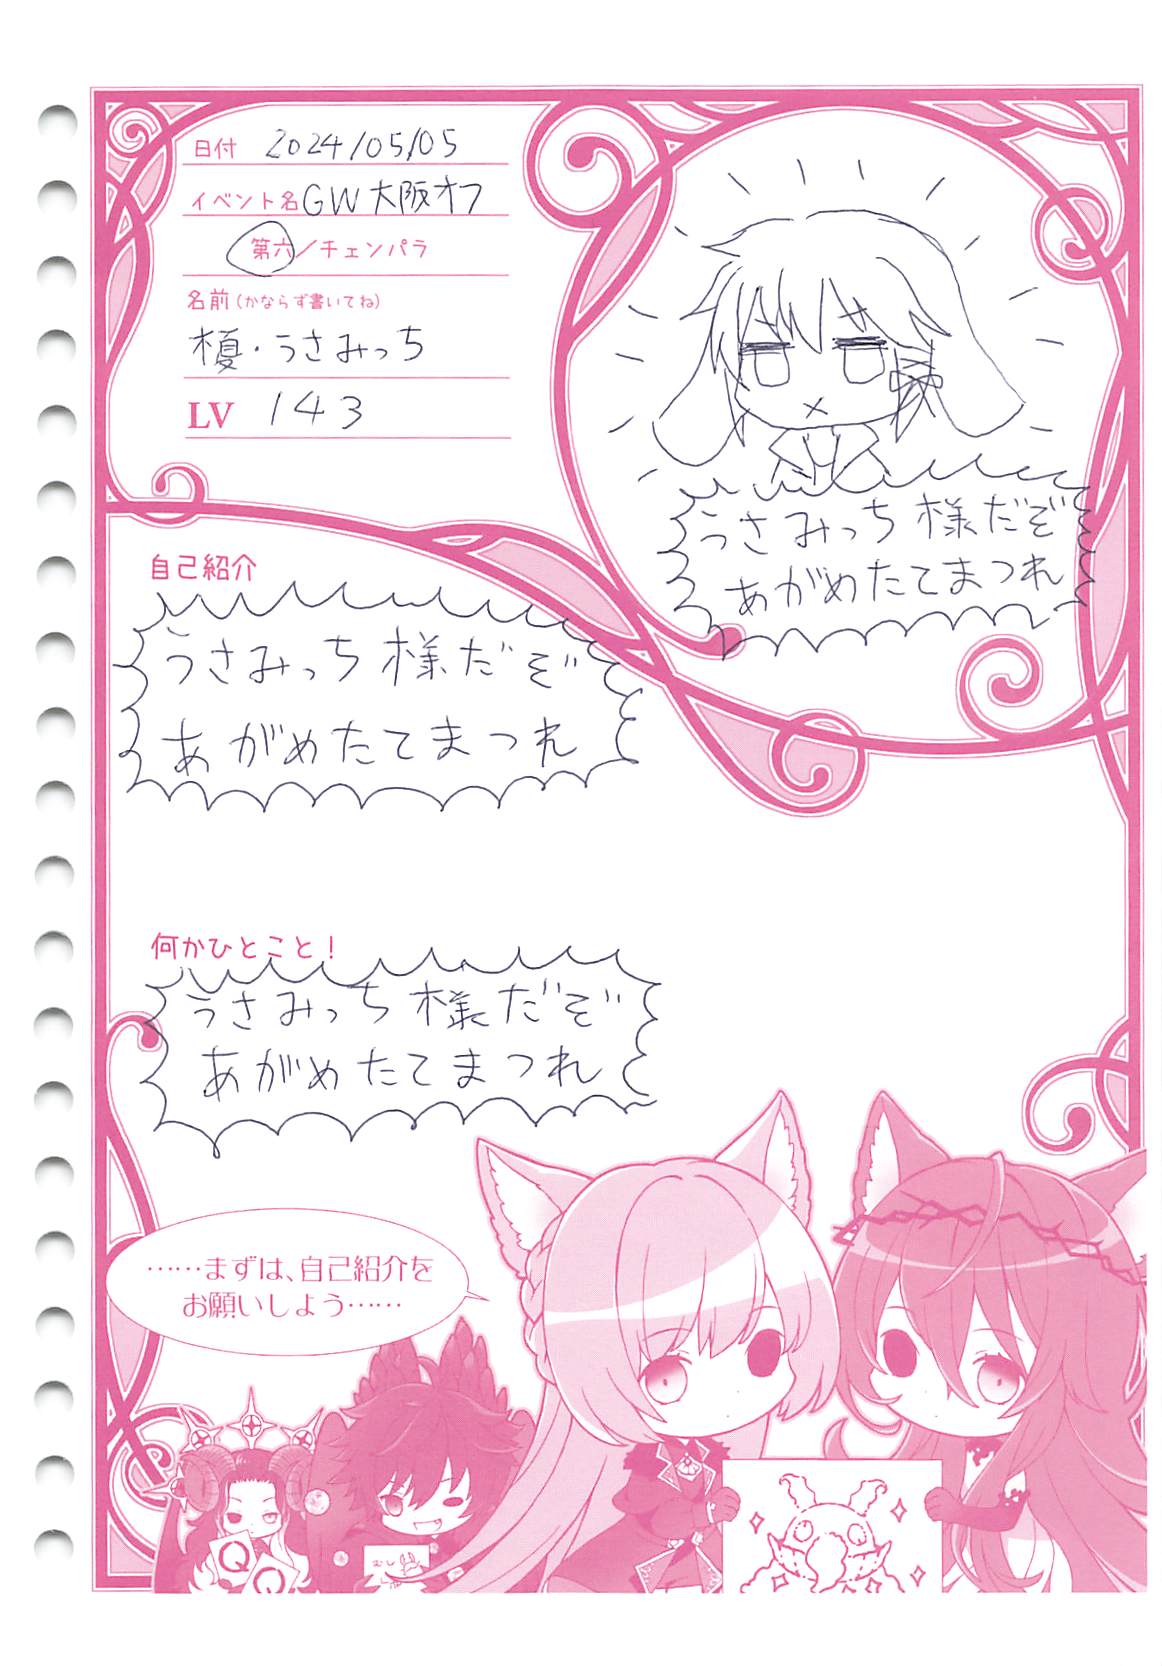 日付 2024/05/05
イベント名 GW大阪オフ
第六/チェンパラ
名前(かならず書いてね)
榎・うさみっち
LV 143
うさみっち様だぞ
あがめたてまつれ
自己紹介
うさみっち様だぞ
あがめたてまつれ
何かひとこと!
うさみっち様だぞ
あがめたてまつれ
……まずは、自己紹介を
お願いしよう……
Q
Q